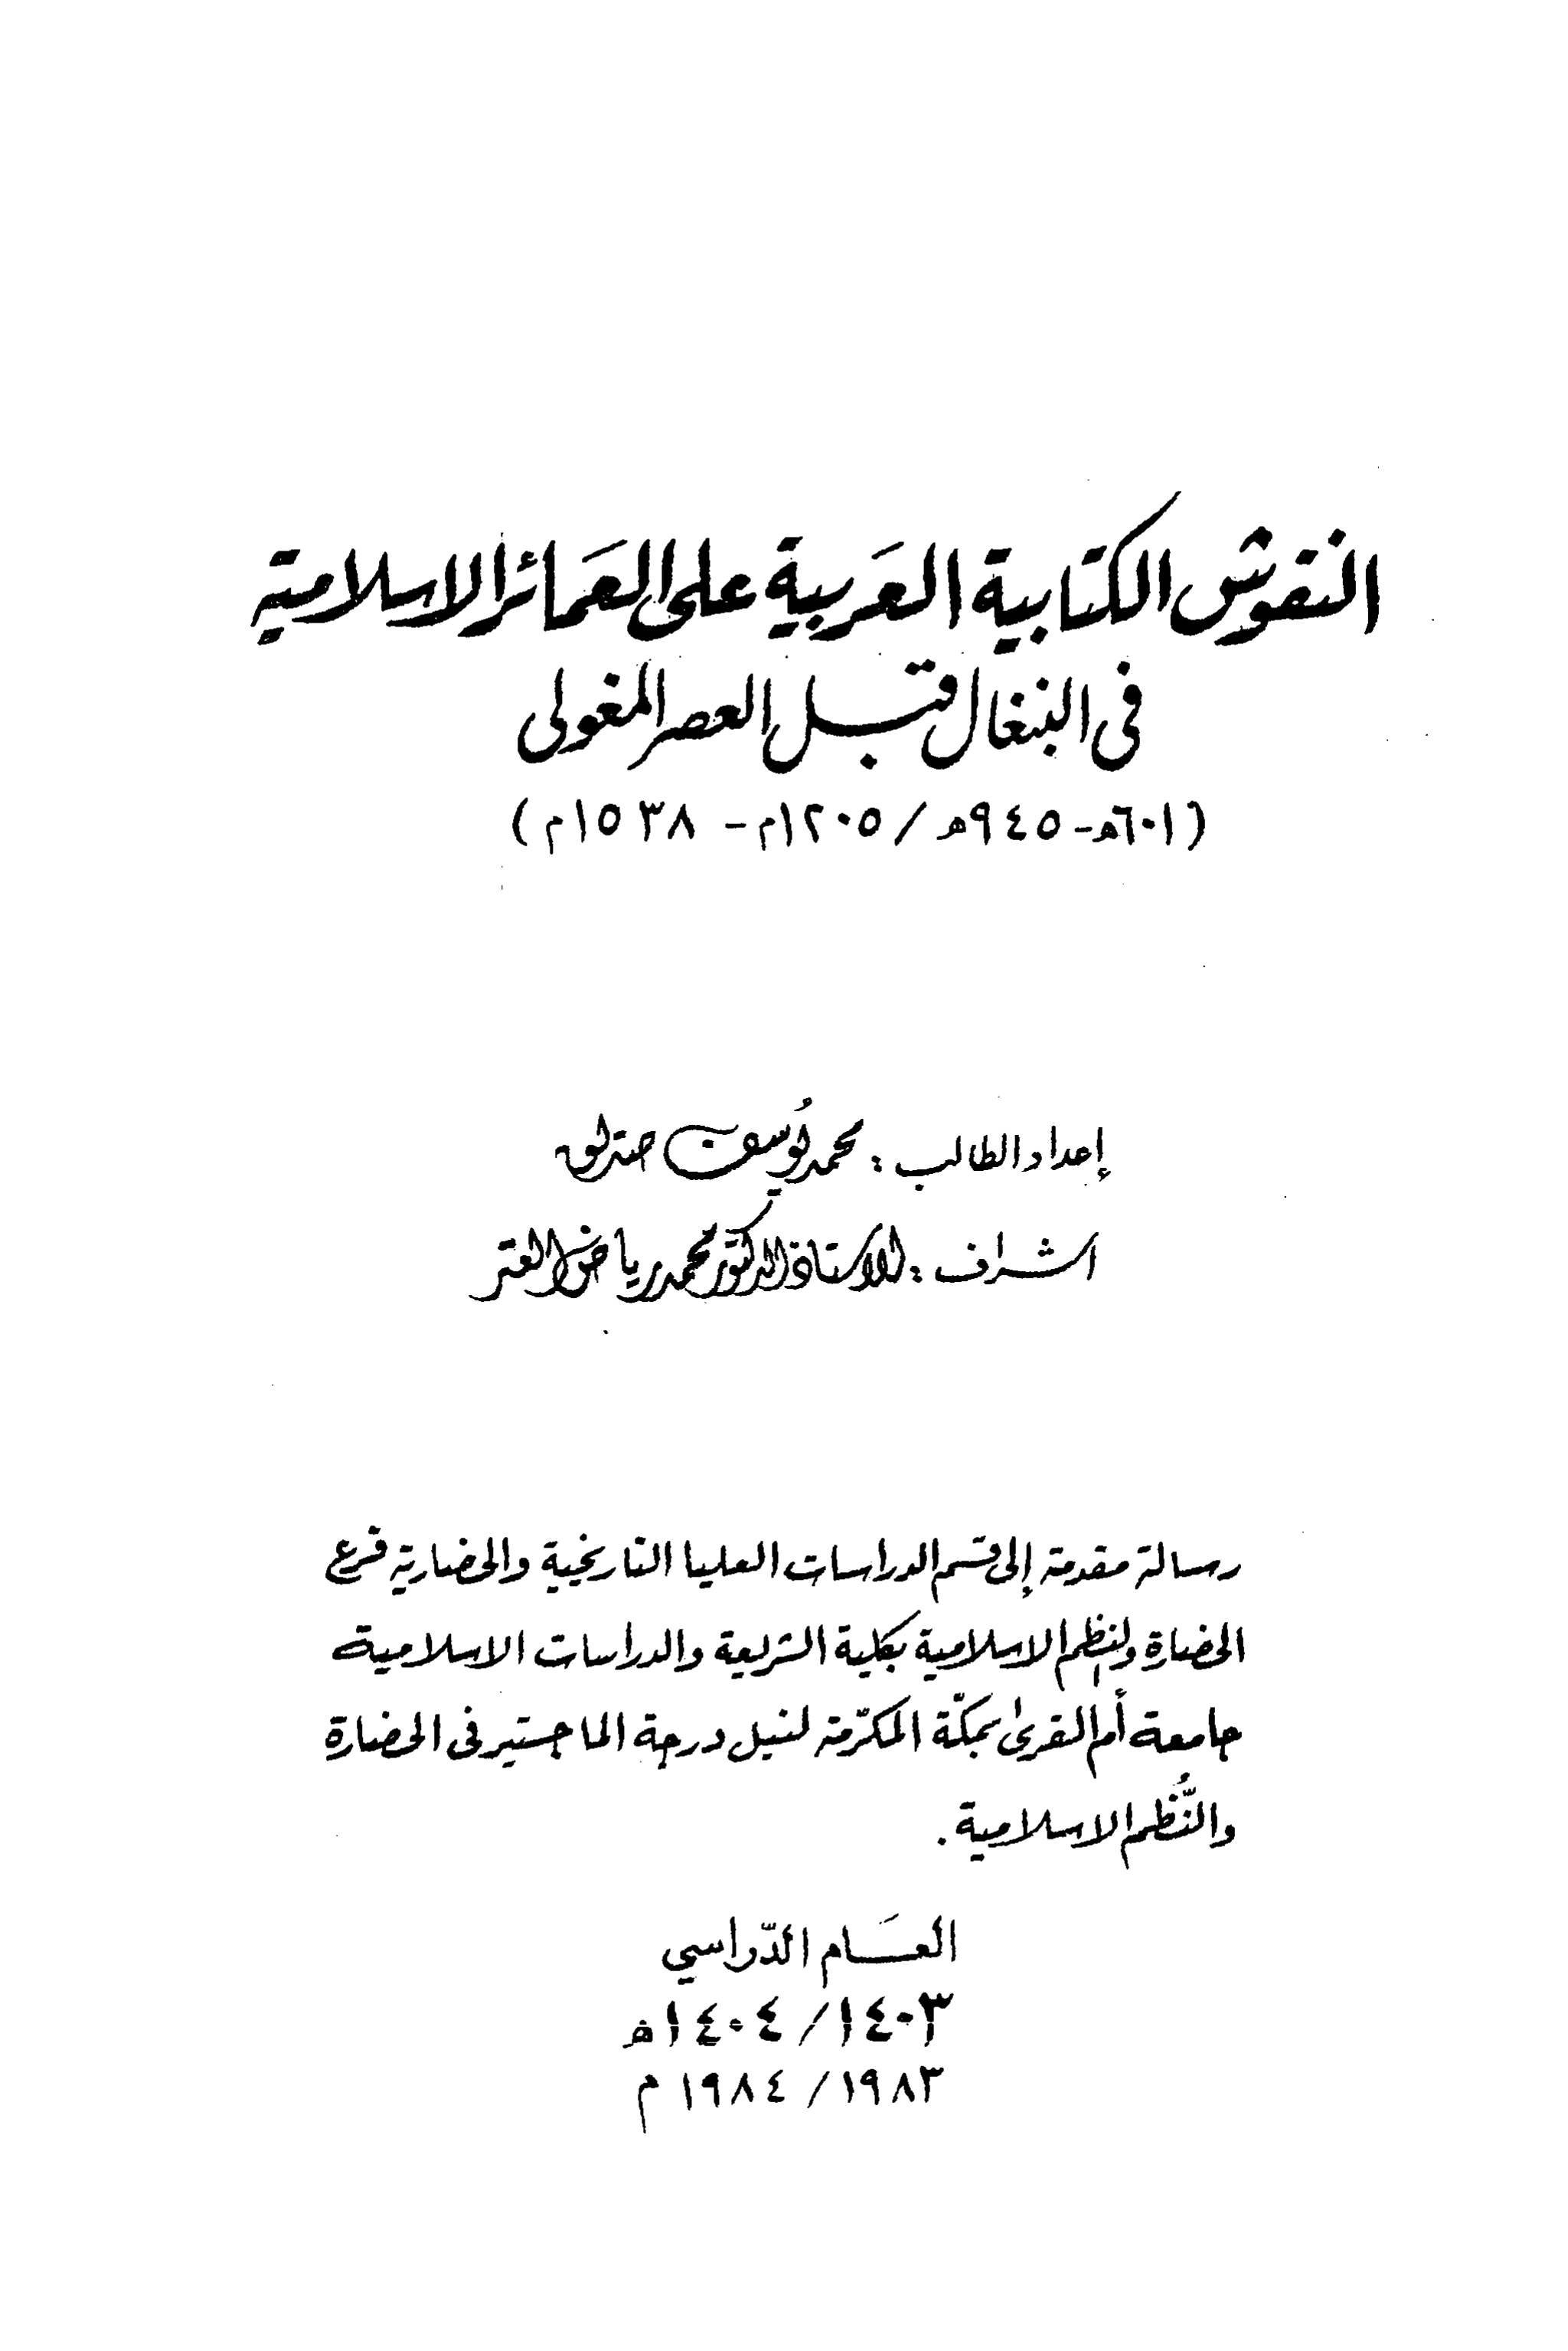 النقوش الكتابية العَربية على العَمائر الاسلامية
فى البنغال قبل العصر المغولى
(٦٠١هـ- ٩٤٥هـ / ١٢٠٥م - ١٥٣٨م)
إعداد الطالب : محمد يُوسف صديق
اشراف : الاستاذ الدكتور محمد رياض العتر
رسالة مقدمة إلى قسم الدراسات العليا التاريخية والحضارية فرع
الحضارة والنظم الاسلامية بكلية الشريعة والدراسات الاسلامية
جامعة أم القرى بمكّة المكرّمة لنيل درجة الماجستير فى الحضارة
والنُّظم الاسلامية .
العَـام الدّراسي
١٤٠٣/ ١٤٠٤هـ
١٩٨٣/ ١٩٨٤ م